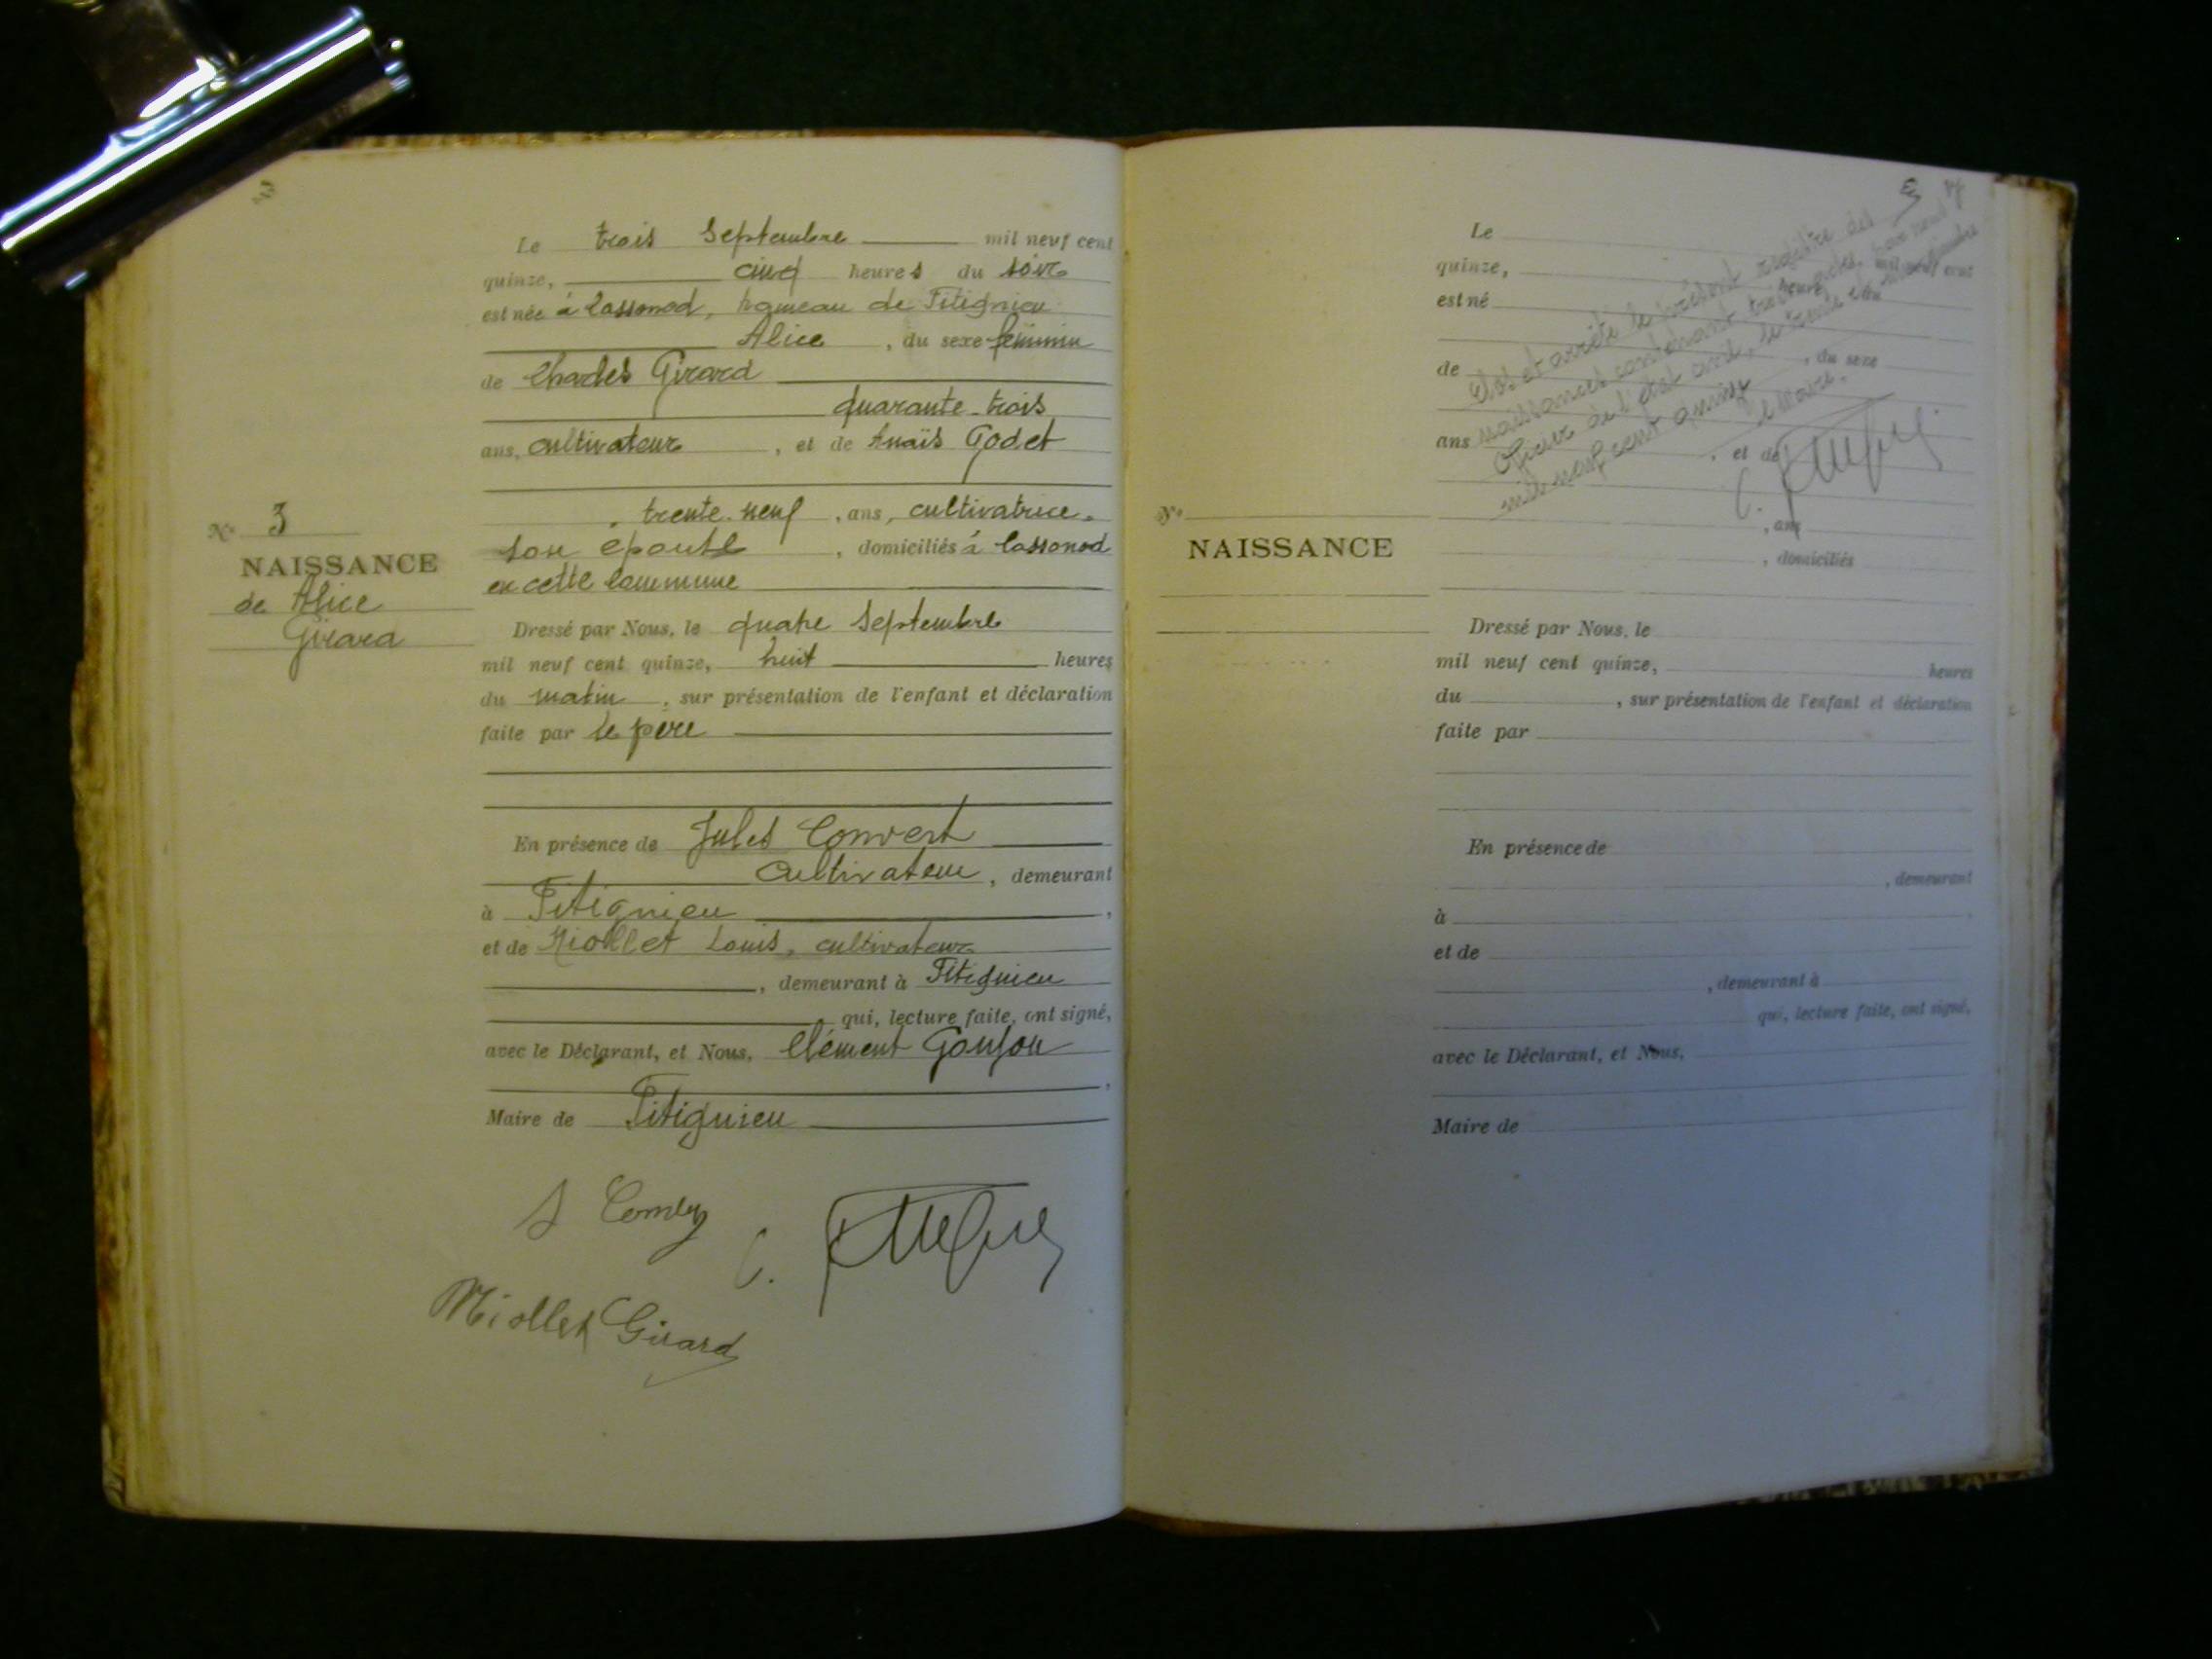 Le trois Septembre mil neuf cent
quinze, cinq heures du soir
est née à Cassonod, hameau de Pitignieu
Alice , du sexe féminin
de Charles Girard
quarante-trois
ans, cultivateur , et de Anaïs Godet
, trente-neuf , ans, cultivatrice,
son épouse , domiciliés à Cassonod
en cette commune
No 3
NAISSANCE
de Alice
Girard
Dressé par Nous, le quatre Septembre
mil neuf cent quinze, huit heures
du matin , sur présentation de l'enfant et déclaration
faite par le père
En présence de Jules Convert
Cultivateur , demeurant
à Pitignieu ,
et de Miollet Louis, cultivateur
, demeurant à Pitignieu
qui, lecture faite, ont signé,
avec le Déclarant, et Nous, Clément Goujon
,
Maire de Pitignieu
C.
Miollet Girard
Le
quinze, mil neuf cent
est né heure du
, du sexe
de
ans , et de
, ans
, domiciliés
Clos et arrêté le présent registre des
naissances contenant trois actes, par nous
Officier de l'état civil, le trente et un décembre
mil neuf cent quinze
le Maire.
C.
No
NAISSANCE
Dressé par Nous, le
mil neuf cent quinze, heures
du , sur présentation de l'enfant et déclaration
faite par
En présence de
, demeurant
à
et de
, demeurant à
qui, lecture faite, ont signé,
avec le Déclarant, et Nous,
Maire de